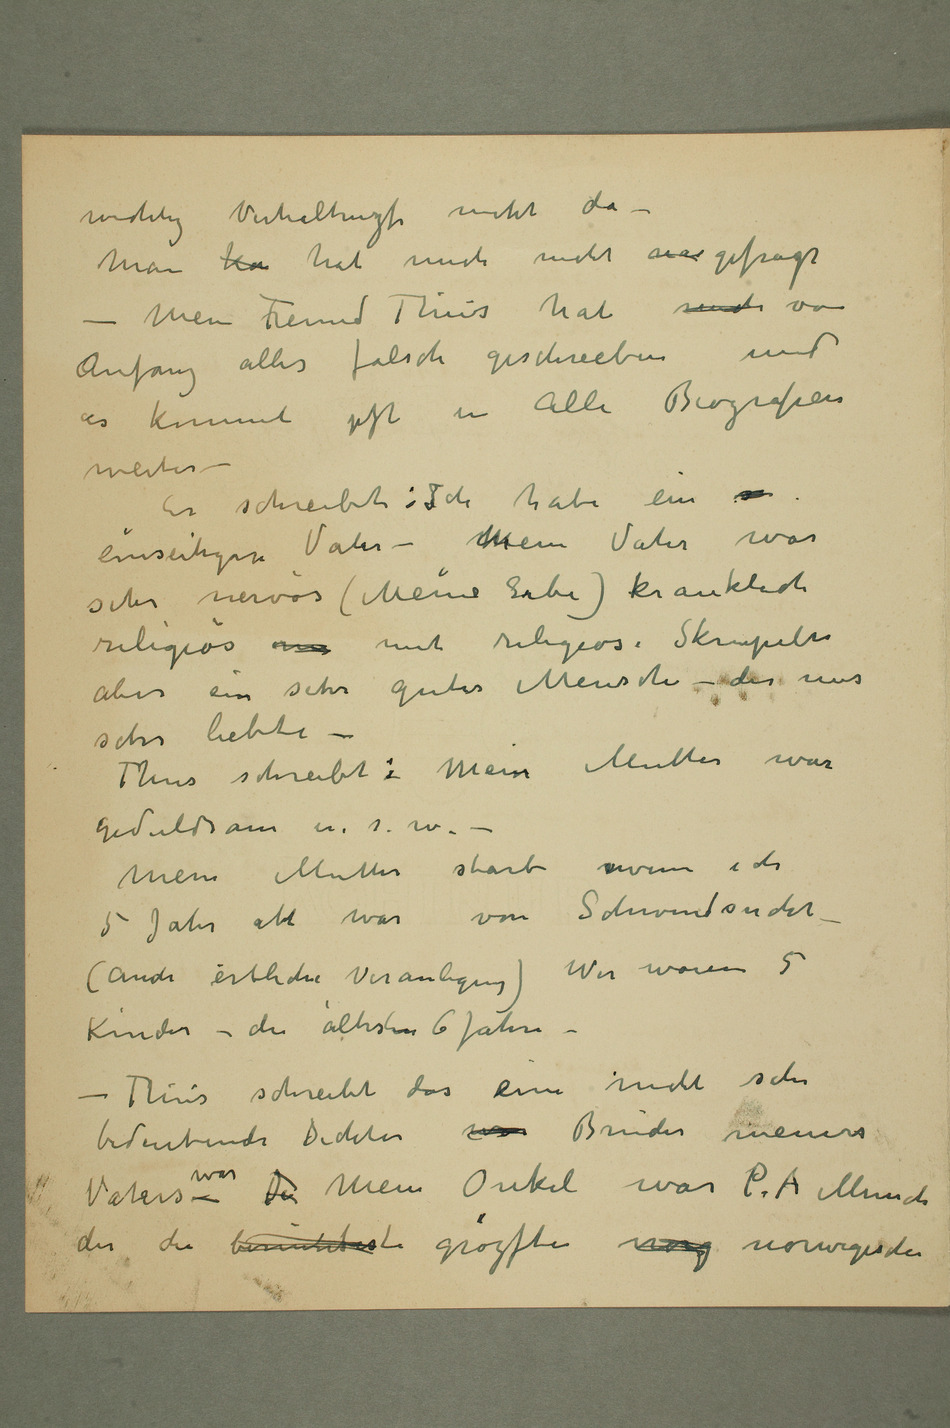 wichtig Verhaltnugße nicht da –
Man ka hat mich nicht aus gefragt
– Mein Freund Thiis hat mich von
Anfang alles falsch geschreeben und
es kommt oft in Alle Biografien
weiter –
Er schreibt : Ich habe ein
einseitigen Vater – Mein Vater war
sehr nervös (Meine Erbe) kranklich
religiös mit religiose Skrupeln
aber ein sehr guter Mensch – der uns
sehr liebte –
Thiis schreibt : Mein Mutter war
geduldsam u. s. w. –
Mein Mutter starb wenn ich
5 Jahr alt war von Schwindsucht –
(Auch erbliche Veranlegung) Wir waren 5
Kinder – die ältesten 6 Jahre –
– Thiis schreibt das eine nicht sehr
bedeutende Dichter war Bruder meines
Vaters war – Die Mein Onkel war P. A Munch
der die berühmteste größte norg norwegische